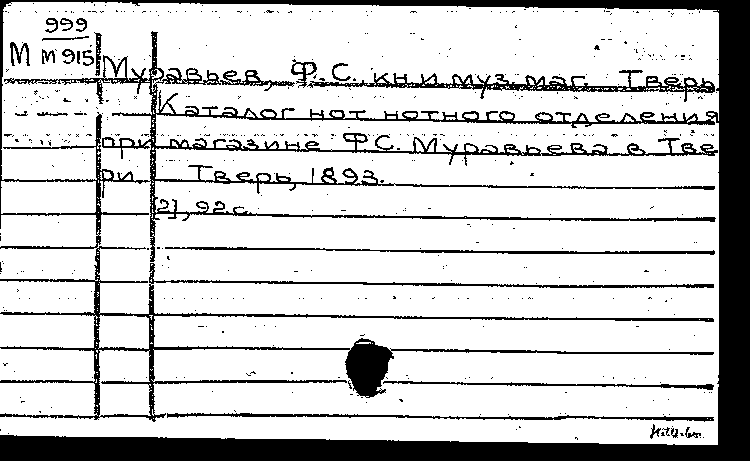 999
М М 915
Муравьев, Ф. С. кн и муз. маг. Тверь
Каталог нот нотного отделения
при магазине Ф.С. Муравьева в Тве
ри. Тверь, 1893.
[2], 92 с.